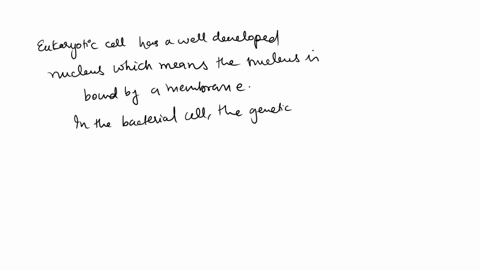 Eukaryotic cell has a well developed
nucleus which means the nucleus is
bound by a membrane.
In the bacterial cell, the genetic